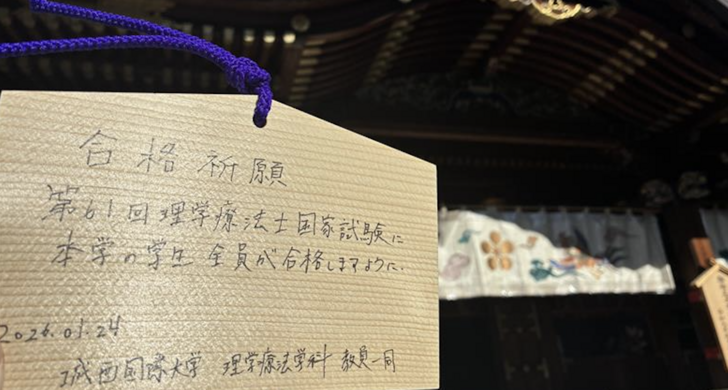 合格祈願
第61回理学療法士国家試験に
本学の学生 全員が合格しますように.
2026.01.24
城西国際大学 理学療法学科 教員一同